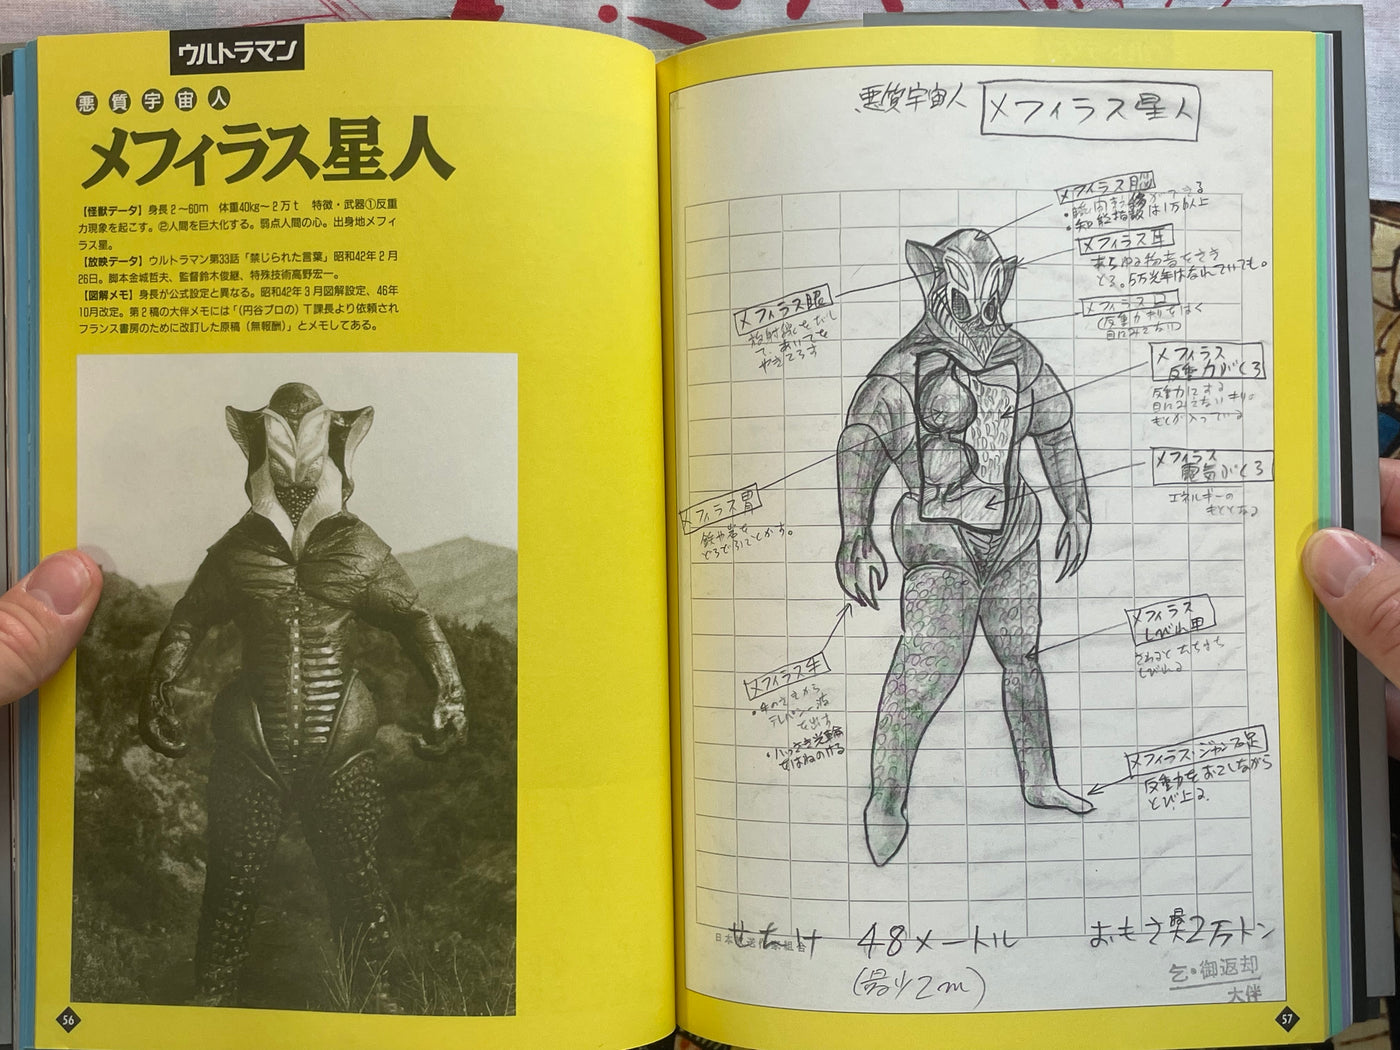 ウルトラマン
悪質宇宙人
メフィラス星人
【怪獣データ】身長2〜60m 体重40kg〜2万t 特徴・武器①反重
力現象を起こす。②人間を巨大化する。弱点人間の心。出身地メフィ
ラス星。
【放映データ】ウルトラマン第33話「禁じられた言葉」昭和42年2月
26日。脚本金城哲夫、監督鈴木俊継、特殊技術高野宏一。
【図解メモ】身長が公式設定と異なる。昭和42年3月図解設定、46年
10月改定。第2稿の大伴メモには「(円谷プロの)T課長より依頼され
フランス書房のために改訂した原稿(無報酬)」とメモしてある。
56
悪質宇宙人 メフィラス星人
メフィラス脳
・知能指数は1万以上
メフィラス耳
あらゆる物音をきき
とる。5万光年はなれていても。
メフィラス口
(反重力
目にみえない)
メフィラス眼
放射線をだし
て、あいてを
やきころす
メフィラス
反重力ぶくろ
反重力にする
目にみえない
もとが入っている
メフィラス
電気ぶくろ
エネルギーの
もととなる
メフィラス胃
鉄や岩を
どろどろにとかす。
メフィラス
しびれ甲
さわると
しびれる
メフィラス手
・手のさきから
テレパシー波
を出す
・八つさき光輪
をはねのける
メフィラス・ジャンプ足
反重力をおこしながら
とび上る。
せたけ 48メートル おもさ 2万トン
(最小2m)
乞・御返却
大伴
57